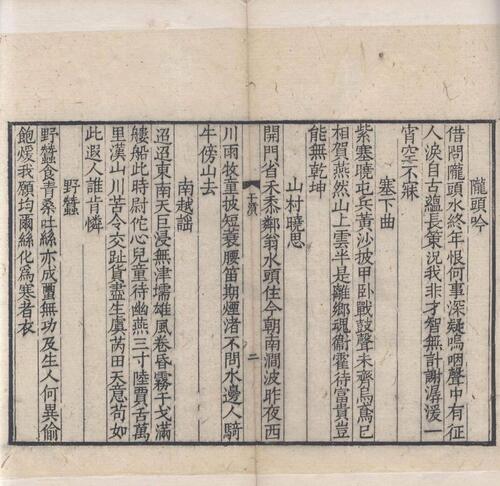 隴頭吟
借問隴頭水終年恨何事深疑嗚咽聲中有征
人淚自古蘊長策況我非才智無計謝潺湲一
宵空不寐
塞下曲
紫塞曉屯兵黃沙披甲卧戰鼓聲未齊烏鳶已
相賀燕然山上雲半是離鄉魂衞霍待富貴豈
能無乾坤
山村曉思
開門省禾黍鄰翁水頭住今朝南澗波昨夜西
川雨牧童披短蓑腰笛期煙渚不問水邊人騎
牛傍山去
南越謠
迢迢東南天巨浸無津壖雄風卷昏霧干戈滿
樓船此時尉佗心兒童待幽燕三寸陸賈舌萬
里漢山川苦令交趾貨盡生虞芮田天意苟如
此遐人誰肯憐
野蠶
野蠶食青桑吐絲亦成蠒無功及生人何異偷
飽煖我願均爾絲化爲寒者衣
二